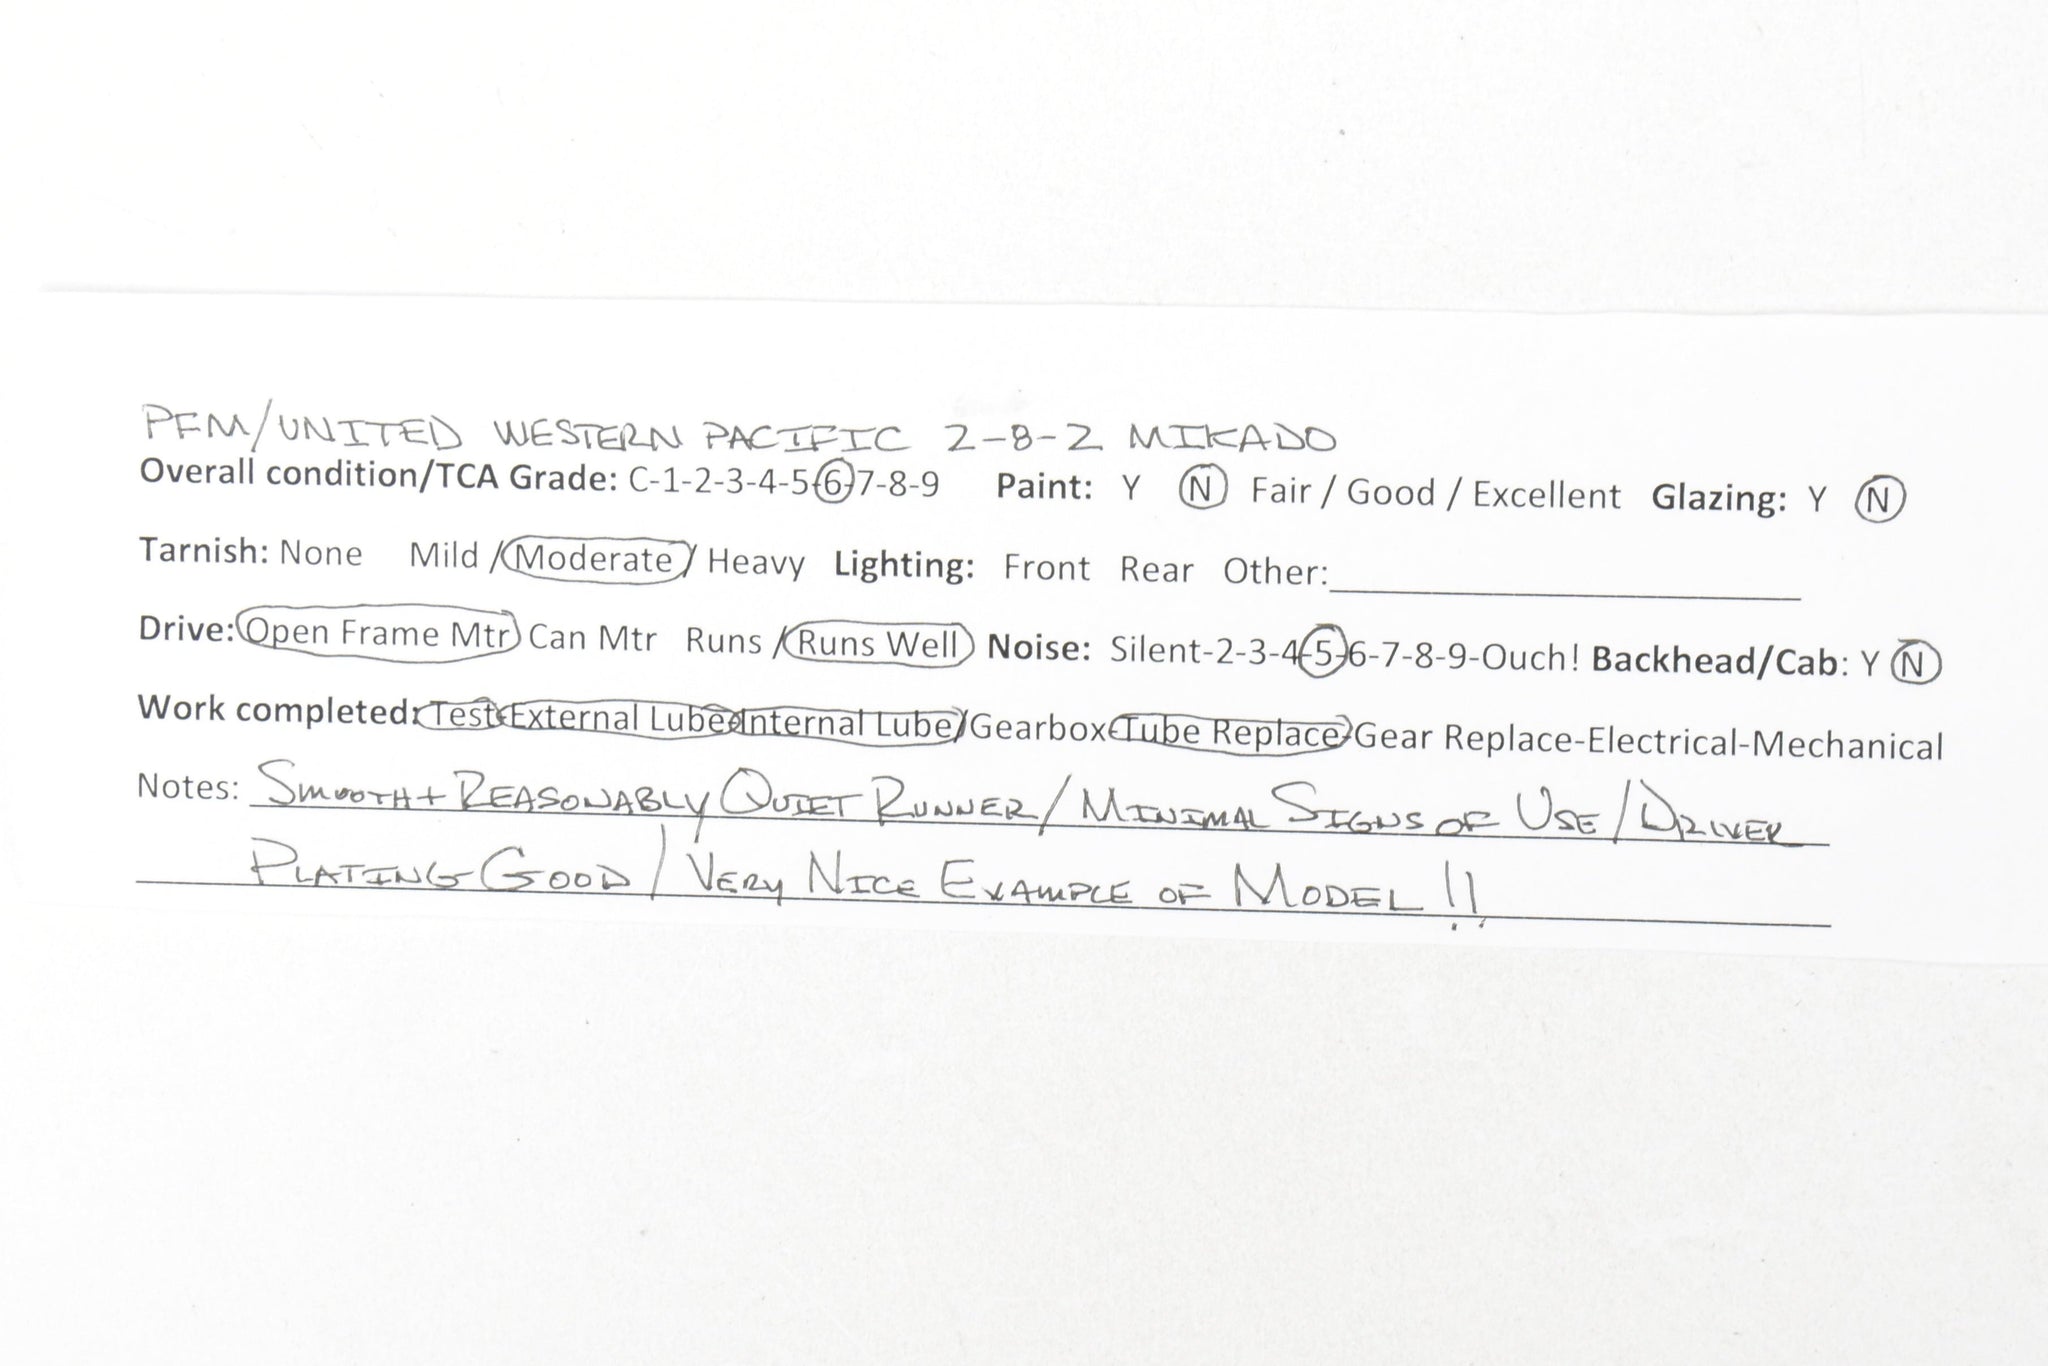 PFM/UNITED WESTERN PACIFIC 2-8-2 MIKADO
Overall condition/TCA Grade: C-1-2-3-4-5-6-7-8-9 Paint: Y N Fair / Good / Excellent Glazing: Y N
Tarnish: None Mild / Moderate / Heavy Lighting: Front Rear Other:
Drive: Open Frame Mtr Can Mtr Runs / Runs Well Noise: Silent-2-3-4-5-6-7-8-9-Ouch! Backhead/Cab: Y N
Work completed: Test-External Lube-Internal Lube/Gearbox-Tube Replace-Gear Replace-Electrical-Mechanical
Notes: SMOOTH + REASONABLY QUIET RUNNER/MINIMAL SIGNS OF USE/DRIVER
PLATING GOOD/VERY NICE EXAMPLE OF MODEL!!